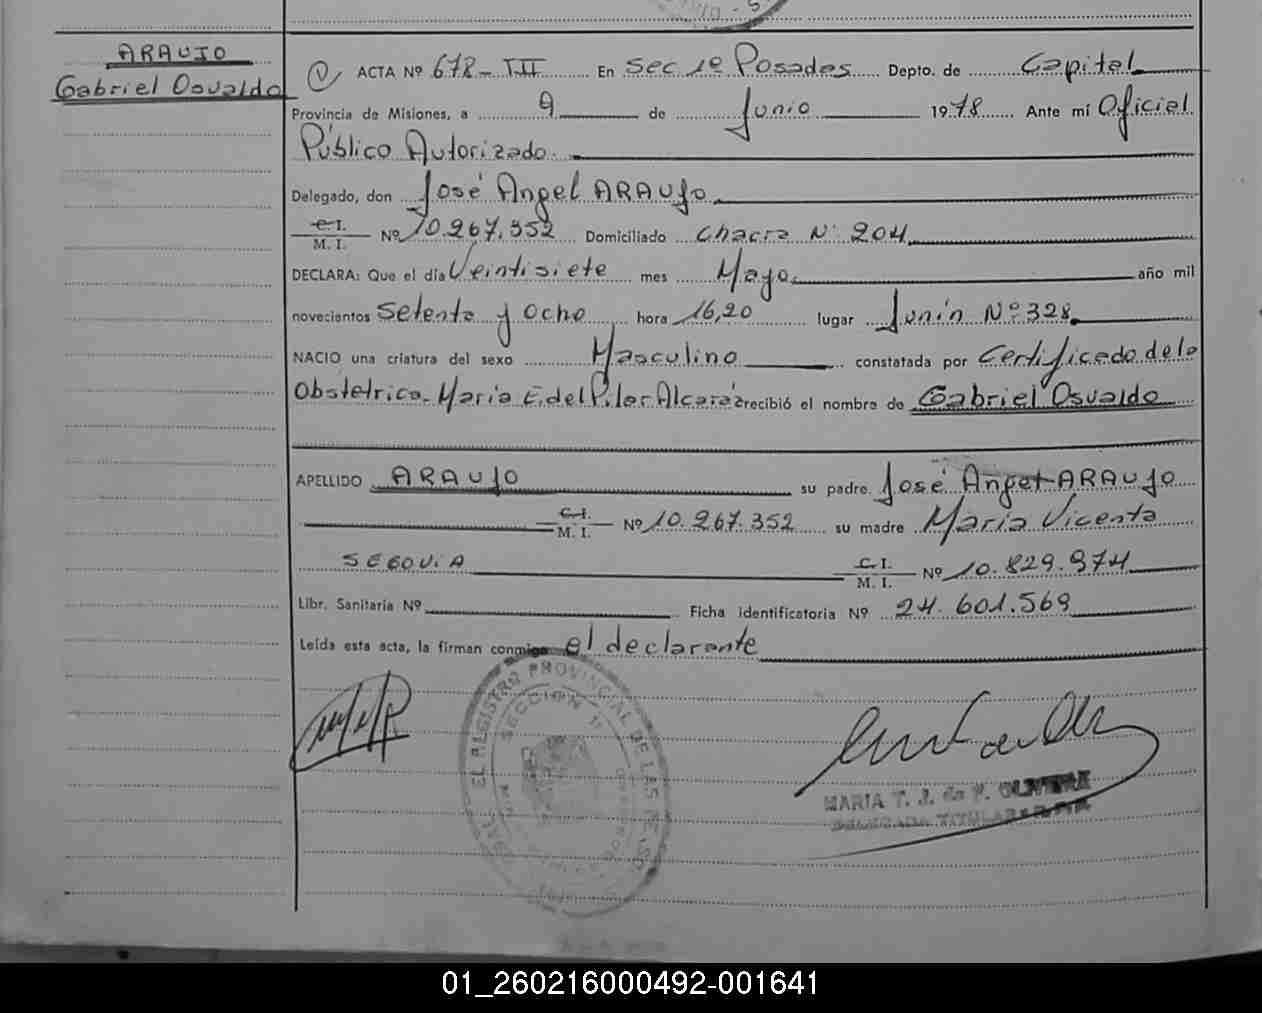 ARAUJO
Gabriel Osvaldo
ACTA Nº 678-III En Sec 1º Posadas Depto. de Capital
Provincia de Misiones, a 9 de Junio 1978 Ante mí Oficial
Público Autorizado.
Delegado, don José Angel ARAUJO
C.I.
M. I. Nº 10.267.352 Domiciliado Chacra Nº 204
DECLARA: Que el día Veintisiete mes Mayo año mil
novecientos Setenta y Ocho hora 16,20 lugar Junín Nº 328
NACIO una criatura del sexo Masculino constatada por Certificado de la
Obstetrica. María E. del Pilar Alcaráz recibió el nombre de Gabriel Osvaldo
APELLIDO ARAUJO su padre José Angel ARAUJO
C.I.
M. I. Nº 10.267.352 su madre María Vicenta
SEGOVIA C.I.
M. I. Nº 10.829.974
Libr. Sanitaria Nº Ficha identificatoria Nº 24.601.569
Leída esta acta, la firman conmigo el declarante
EL REGISTRO PROVINCIAL DE LAS
SECCION 1º
MARIA T. J. de OLIVERA
DELEGADA TITULAR
01_260216000492-001641